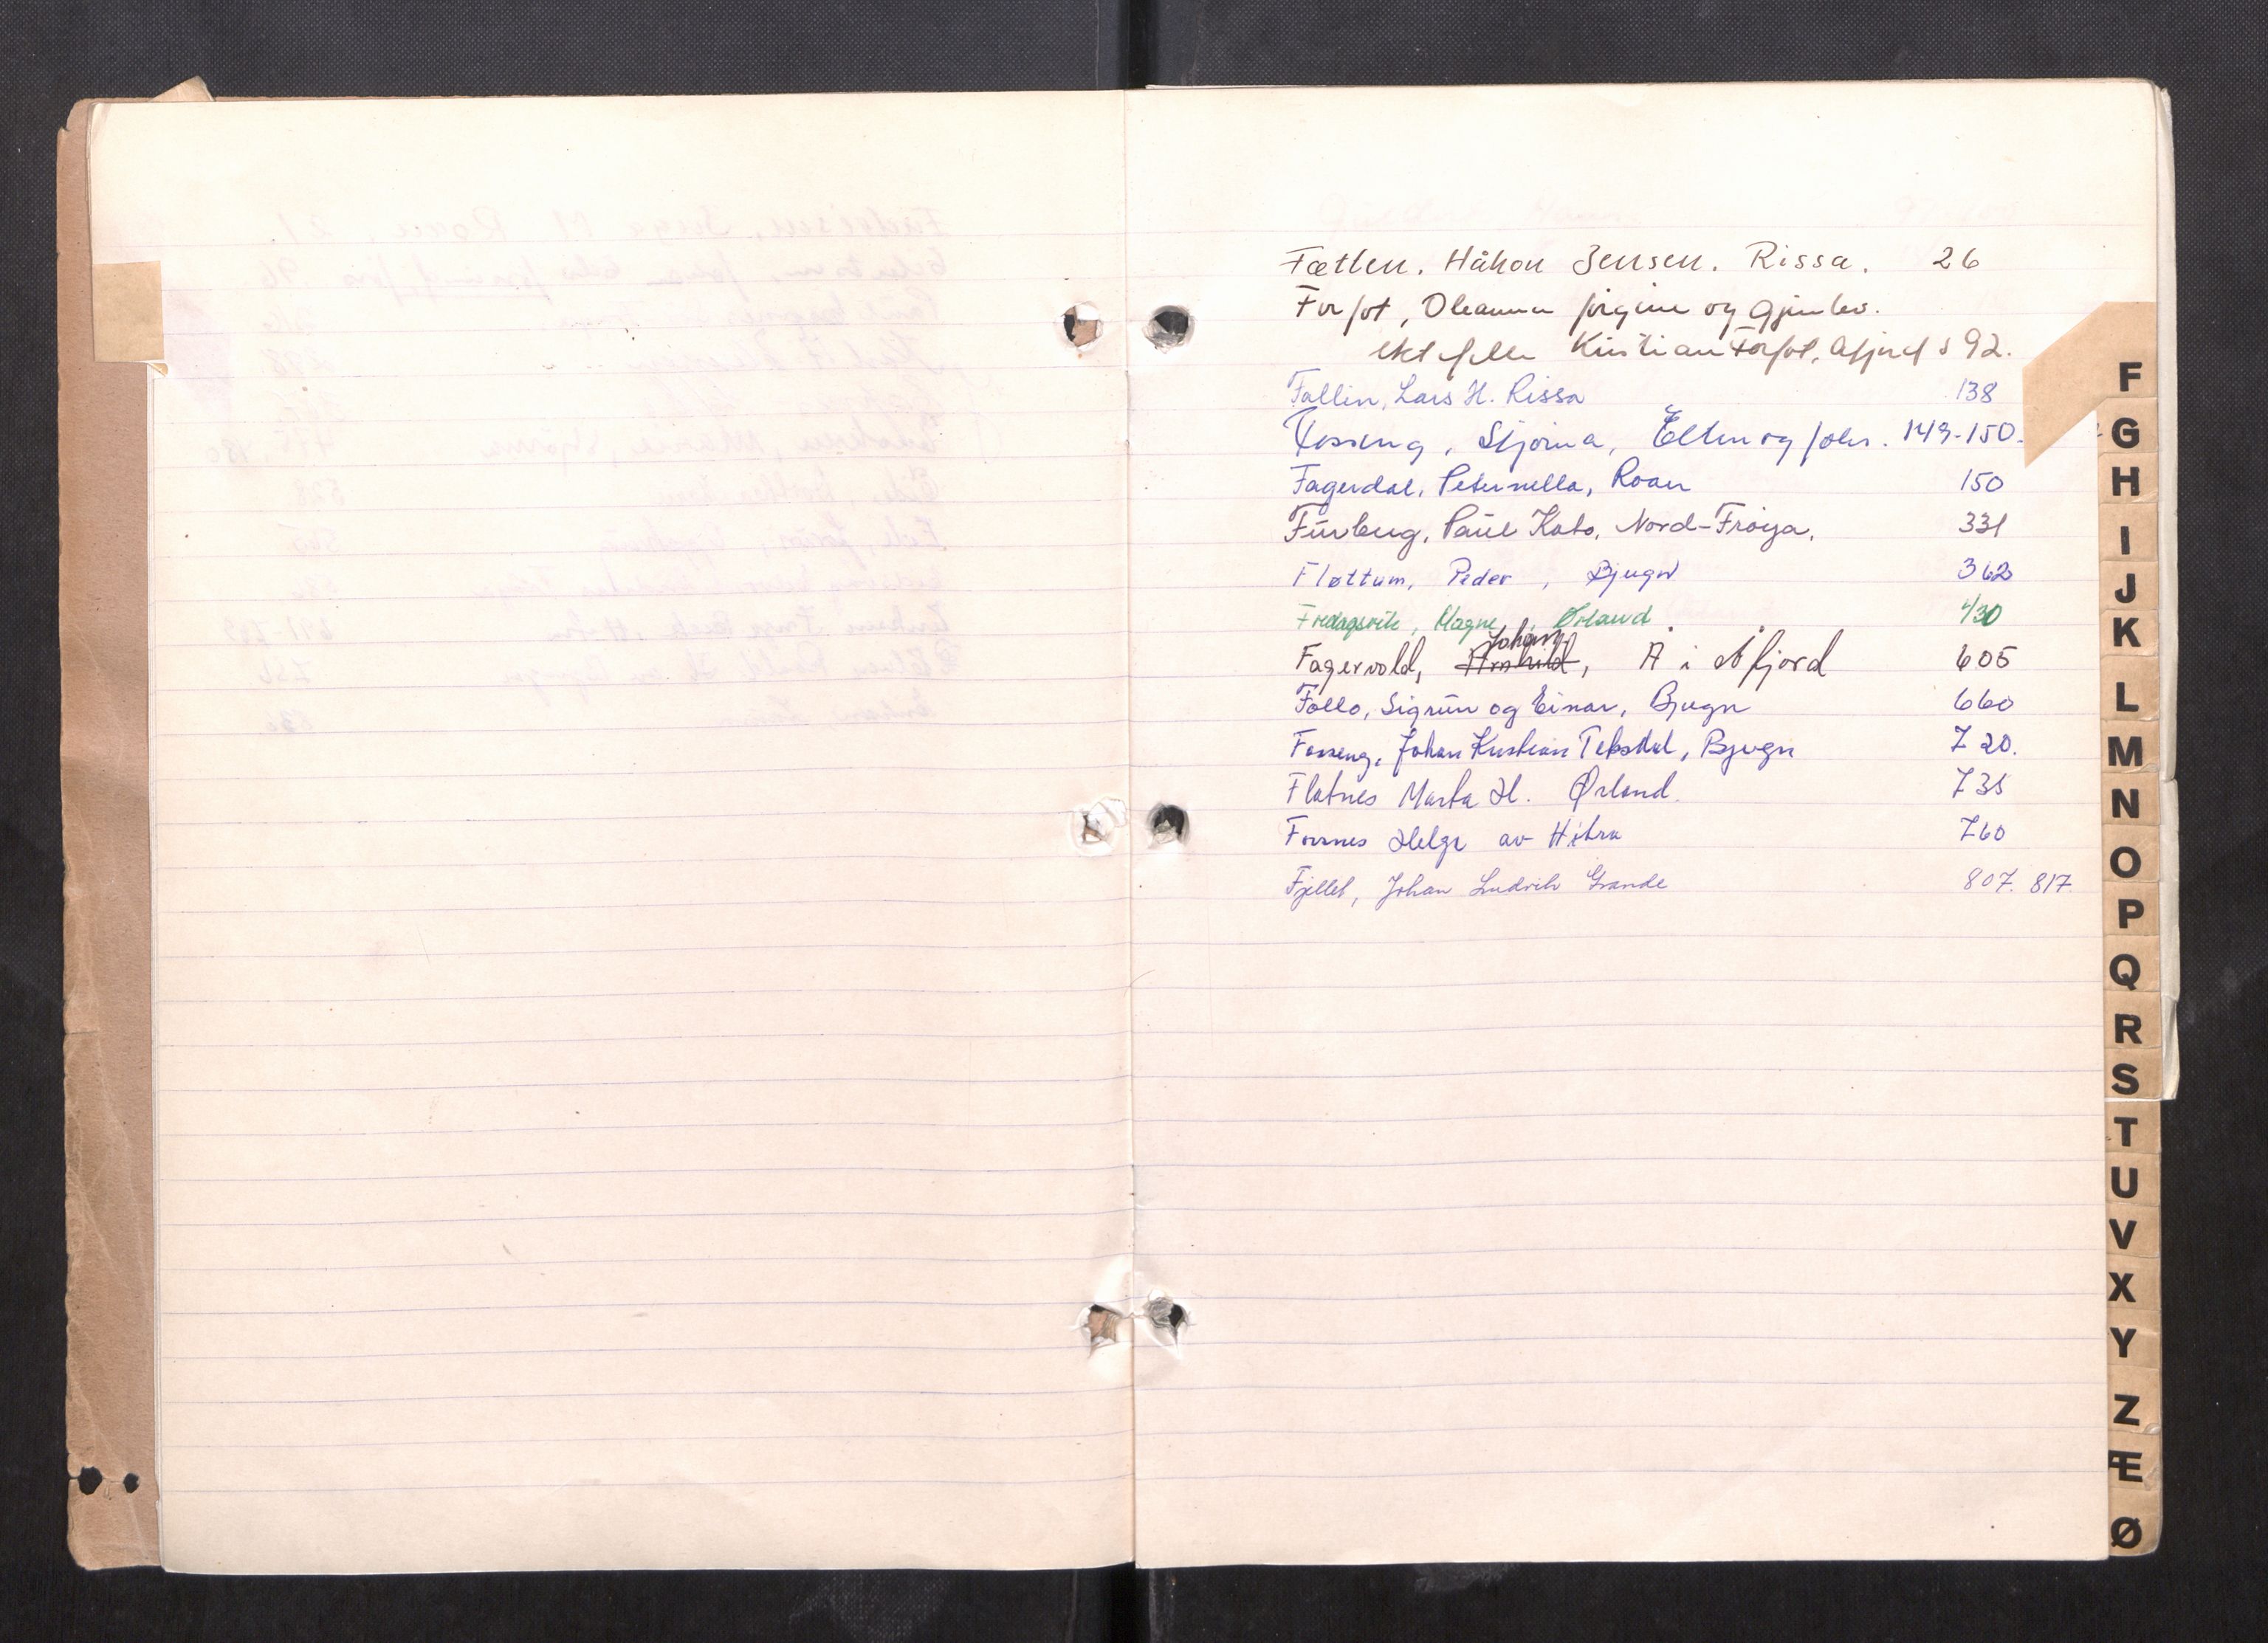 Fætten. Håkon Jensen. Rissa. 26
Forfot, Oleanna Jørgine og Gjenlev.
ektefelle Kristian Forfot, Åfjord s 92.
Fallin, Lars H. Rissa 138
Fosseng, Stjørna, Elten og Johs. 149-150.
Fagerdal, Peternella, Roan 150
Furberg, Paul Kato, Nord-Frøya. 331
Fløttum, Peder, Bjugn 362
Fredagsvik, Magne, Ørland 430
Johann
Fagervold, Arnhild, Å i Åfjord 605
Follo, Sigrun og Einar, Bjugn 660
Fosseng, Johan Kristian Teksdal, Bjugn 720.
Flatnes Marta H. Ørland. 735
Forsnes Helge av Hitra 760
Fjellet, Johan Ludvik Grande 807. 817
F
G
H
I
J
K
L
M
N
O
P
Q
R
S
T
U
V
X
Y
Z
Æ
Ø